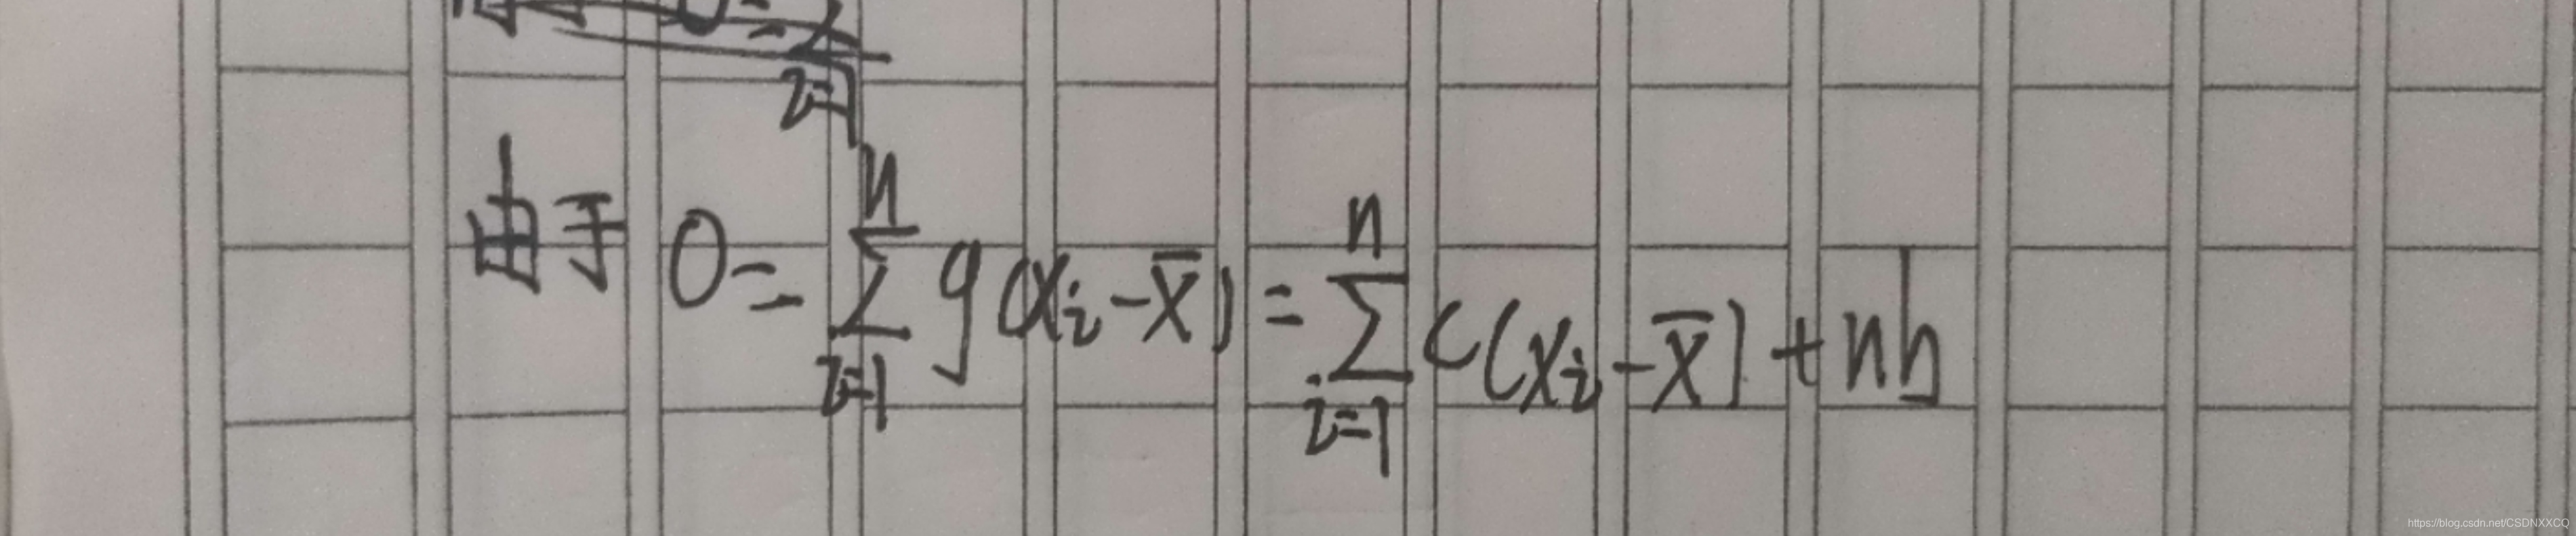 i=1
由于 0 = \sum_{i=1}^{n} g(x_i - \bar{x}) = \sum_{i=1}^{n} c(x_i - \bar{x}) + nb
https://blog.csdn.net/CSDNXXCQ